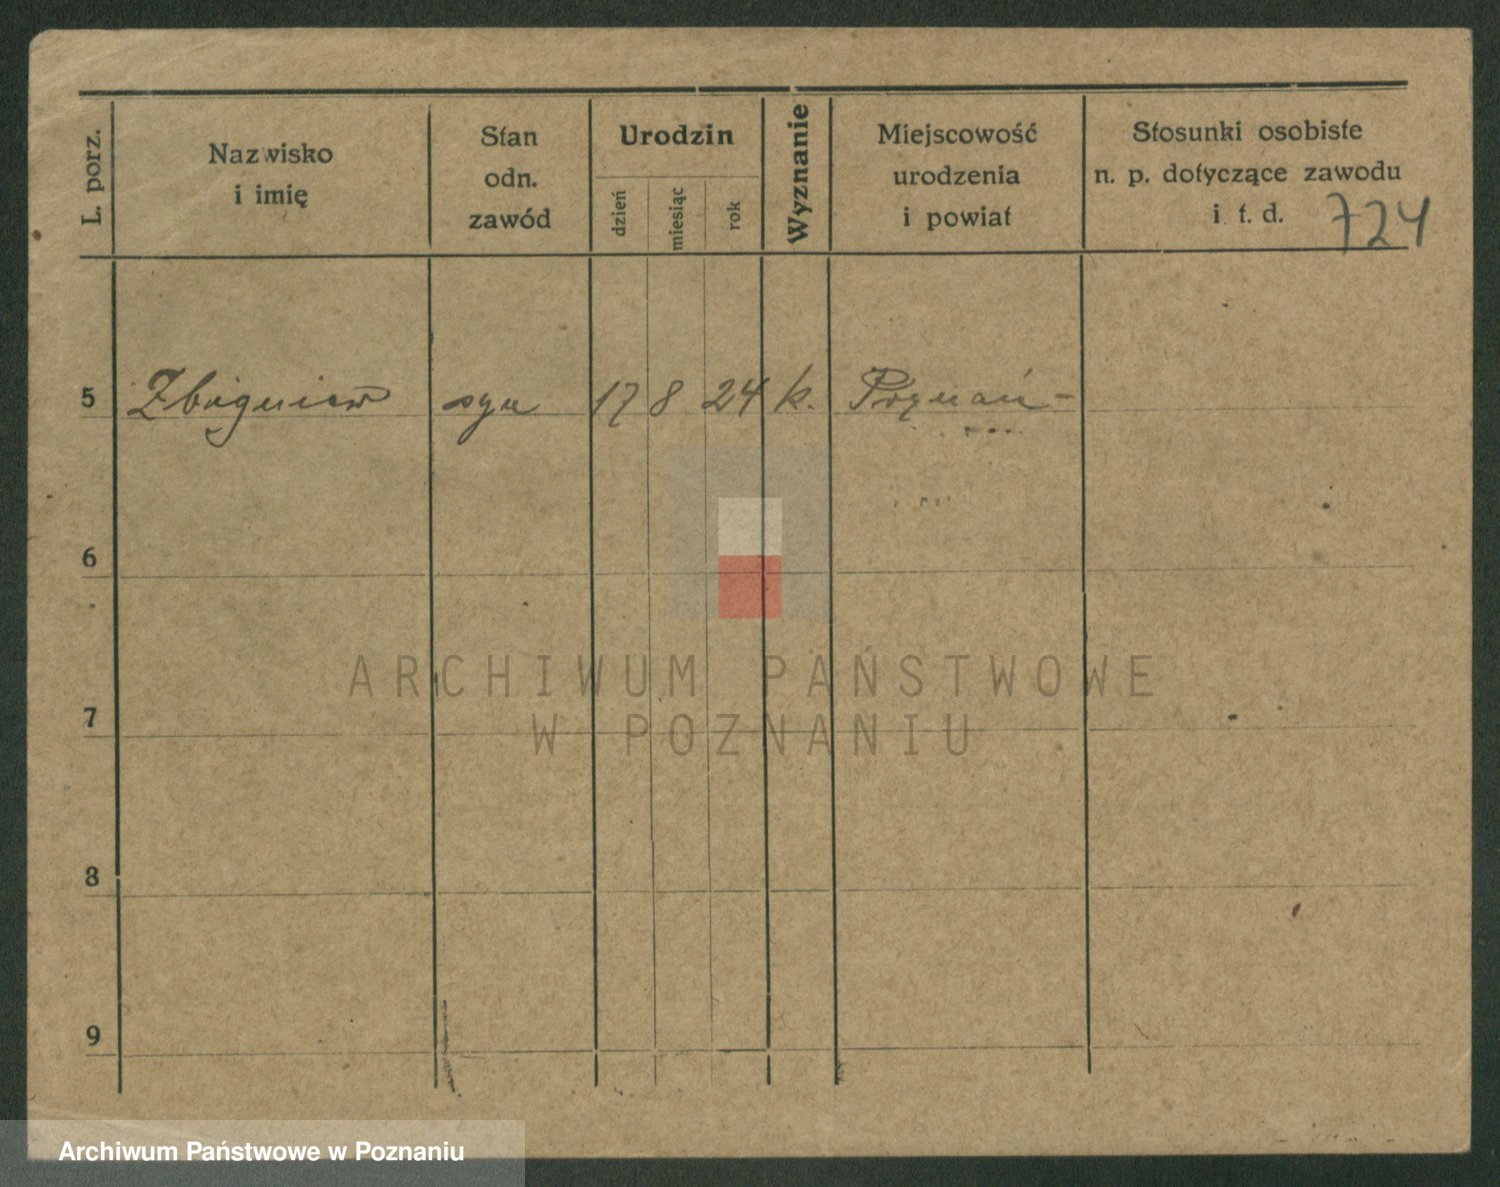 L. porz.
Nazwisko
i imię
Stan
odn.
zawód
Urodzin
dzień
miesiąc
rok
Wyznanie
Miejscowość
urodzenia
i powiat
Stosunki osobiste
n. p. dotyczące zawodu
i t. d.
724
5 Zbigniew syn 17 8 24 k. Poznań -
6
7
8
9
ARCHIWUM PAŃSTWOWE
W POZNANIU
Archiwum Państwowe w Poznaniu